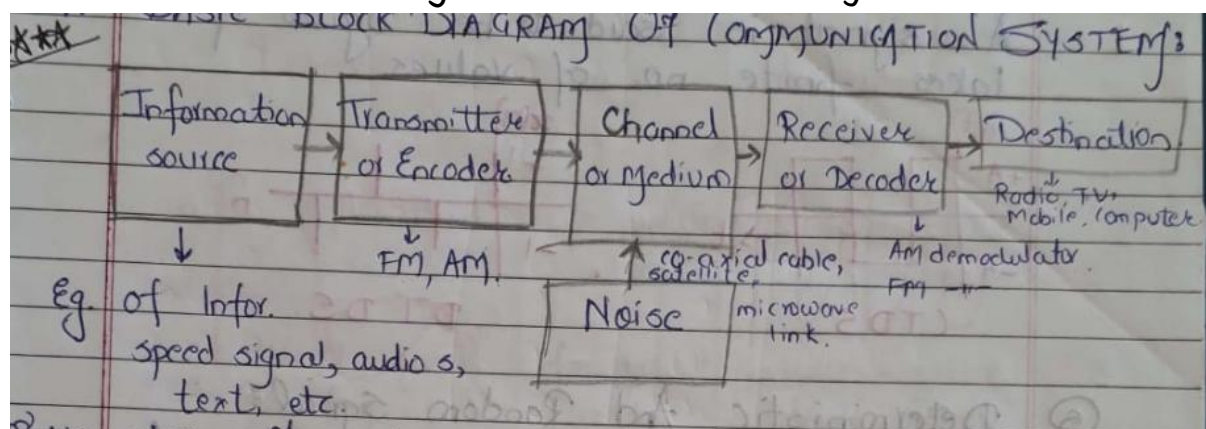 BASIC BLOCK DIAGRAM OF COMMUNICATION SYSTEM:
Information
source
Transmitter
or Encoder
Channel
or Medium
Receiver
or Decoder
Destination
Radio, TV,
Mobile, Computer
FM, AM.
co-axial cable,
satellite,
microwave
link.
AM demodulator
FM -11-
Noise
Eg. of Infor.
speed signal, audio s,
text, etc.